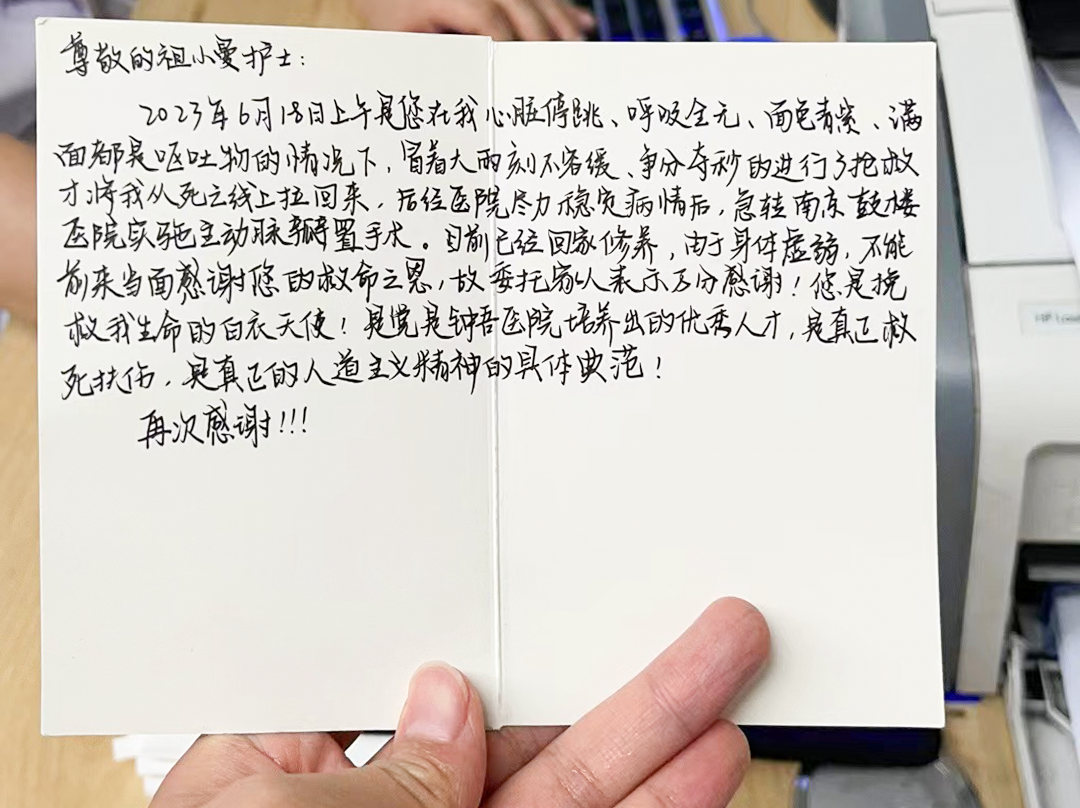 尊敬的祖小曼护士:
2023年6月18日上午是您在我心脏停跳、呼吸全无、面色青紫、满
面都是呕吐物的情况下,冒着大雨刻不容缓、争分夺秒的进行了抢救
才将我从死亡线上拉回来,后经医院尽力稳定病情后,急转南京鼓楼
医院实施主动脉瓣置手术。目前已经回家修养,由于身体虚弱,不能
前来当面感谢您的救命之恩,故委托家人表示万分感谢!您是挽
救我生命的白衣天使!是党是钟吾医院培养出的优秀人才,是真正救
死扶伤,是真正的人道主义精神的具体典范!
再次感谢!!!